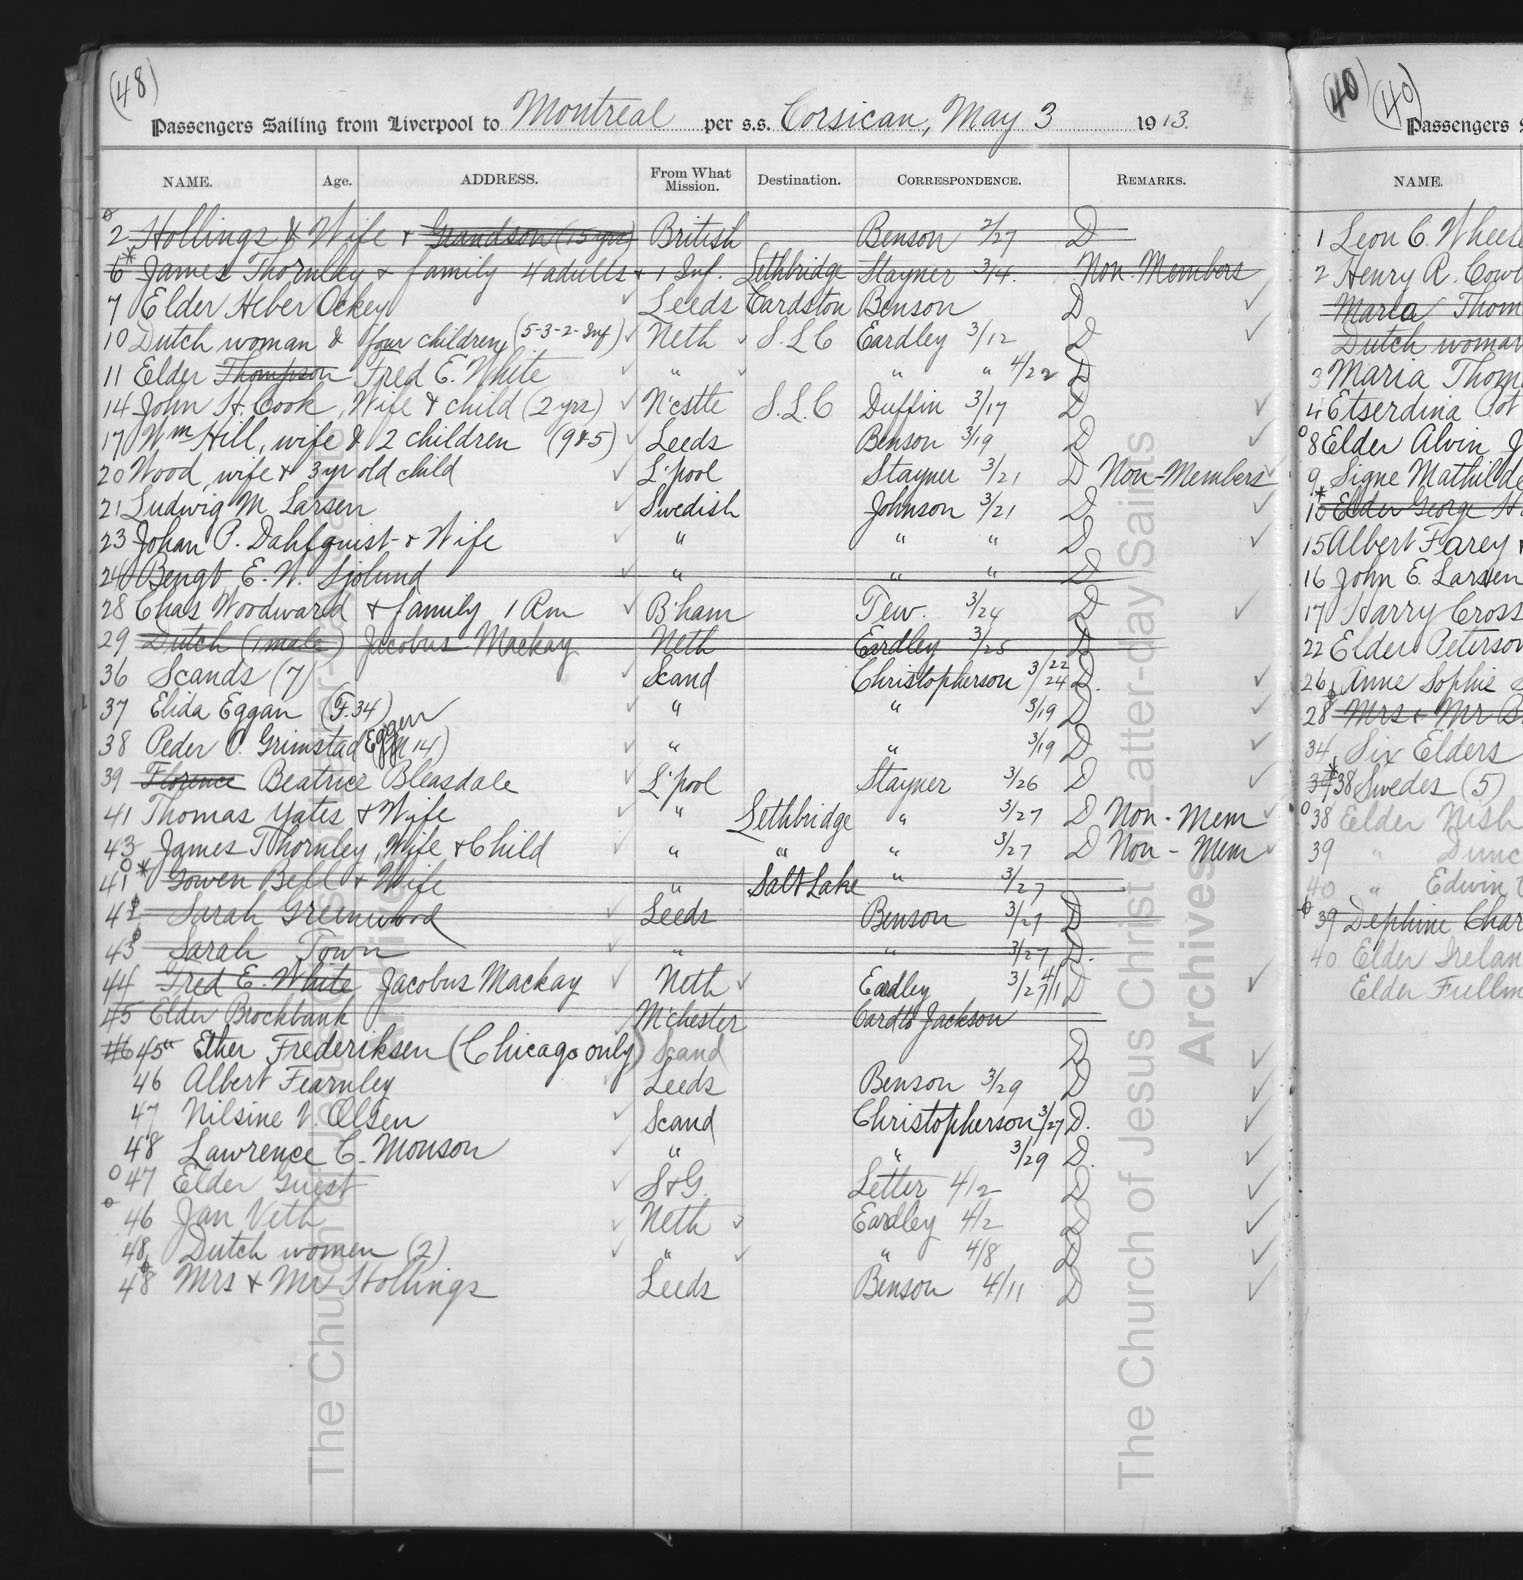 (48)
Passengers Sailing from Liverpool to Montreal per s.s. Corsican, May 3 1913.
NAME. Age. ADDRESS. From What Mission. Destination. CORRESPONDENCE. REMARKS.
2 Hollings & Wife + Grandson (15 yrs) British Benson 2/27 D
6 * James Thornley + family 4 adults + 1 Inf. Lethbridge Stayner 3/4. Non-Members
7 Elder Heber Ockey Leeds Cardston Benson D
10 Dutch woman & four children (5-3-2-Inf) Neth S.L.C Eardley 3/12 D
11 Elder Thompson Fred E. White " " " 4/22 D
14 John H. Cook, Wife & child (2 yrs) N'cstle S.L.C Duffin 3/17 D
17 Wm Hill, wife & 2 children (9&5) Leeds Benson 3/19 D
20 Wood, wife + 3 yr old child L'pool Stayner 3/21 D Non-Members
21 Ludwig M. Larsen Swedish Johnson 3/21 D
23 Johan P. Dahlquist + Wife " " " D
24 Bengt E. W. Sjolund " " " D
28 Chas Woodward + family 1 Rm B'ham Tew. 3/24 D
29 Dutch (1 male) Jacobus Mackay Neth Eardley 3/25 D
36 Scands (7) Scand Christopherson 3/22 3/24 D.
37 Elida Eggan (F.34) " " 3/19 D
38 Peder O. Grimstad Eggen (M 14) " " 3/19 D
39 Florence Beatrice Bleasdale L'pool Stayner 3/26 D
41 Thomas Yates & Wife " Lethbridge " 3/27 D Non-Mem
43 James Thornley, Wife + Child " " " 3/27 D Non-Mem
41 * Gowen Bell + Wife " Salt Lake " 3/27
42 Sarah Greenwood Leeds Benson 3/27 D
43 Sarah Town " " 3/27 D.
44 Fred E. White Jacobus Mackay Neth Eardley 3/27 4/1 D
45 Elder Brockbank M'chester Card to Jackson
46 45 " Ether Frederiksen (Chicago only) Scand D
46 Albert Fearnley Leeds Benson 3/29 D
47 Nilsine V. Olsen Scand Christopherson 3/27 D.
48 Lawrence C. Monson " " 3/29 D.
47 Elder Guest S&G. Letter 4/2 D
46 Jan Veth Neth Eardley 4/2 D
48 Dutch women (2) " " 4/8 D
48 Mrs + Mr Hollings Leeds Benson 4/11 D
40 (40)
Passengers
NAME.
1 Leon C.
2 Henry R.
Maria
Dutch
3 Maria
4 Etserdina
8 Elder Alvin
9 Signe
10 * Elder George
15 Albert Farey
16 John E. Larsen
17 Harry Cross
22 Elder Peterson
26 Anne Sophie
28 Mrs + Mr
34 Six Elders
37 * 38 Swedes (5)
38 Elder
39 "
40 " Edwin
39 Dephine
40 Elder
Elder
The Church of Jesus Christ of Latter-day Saints
Archives